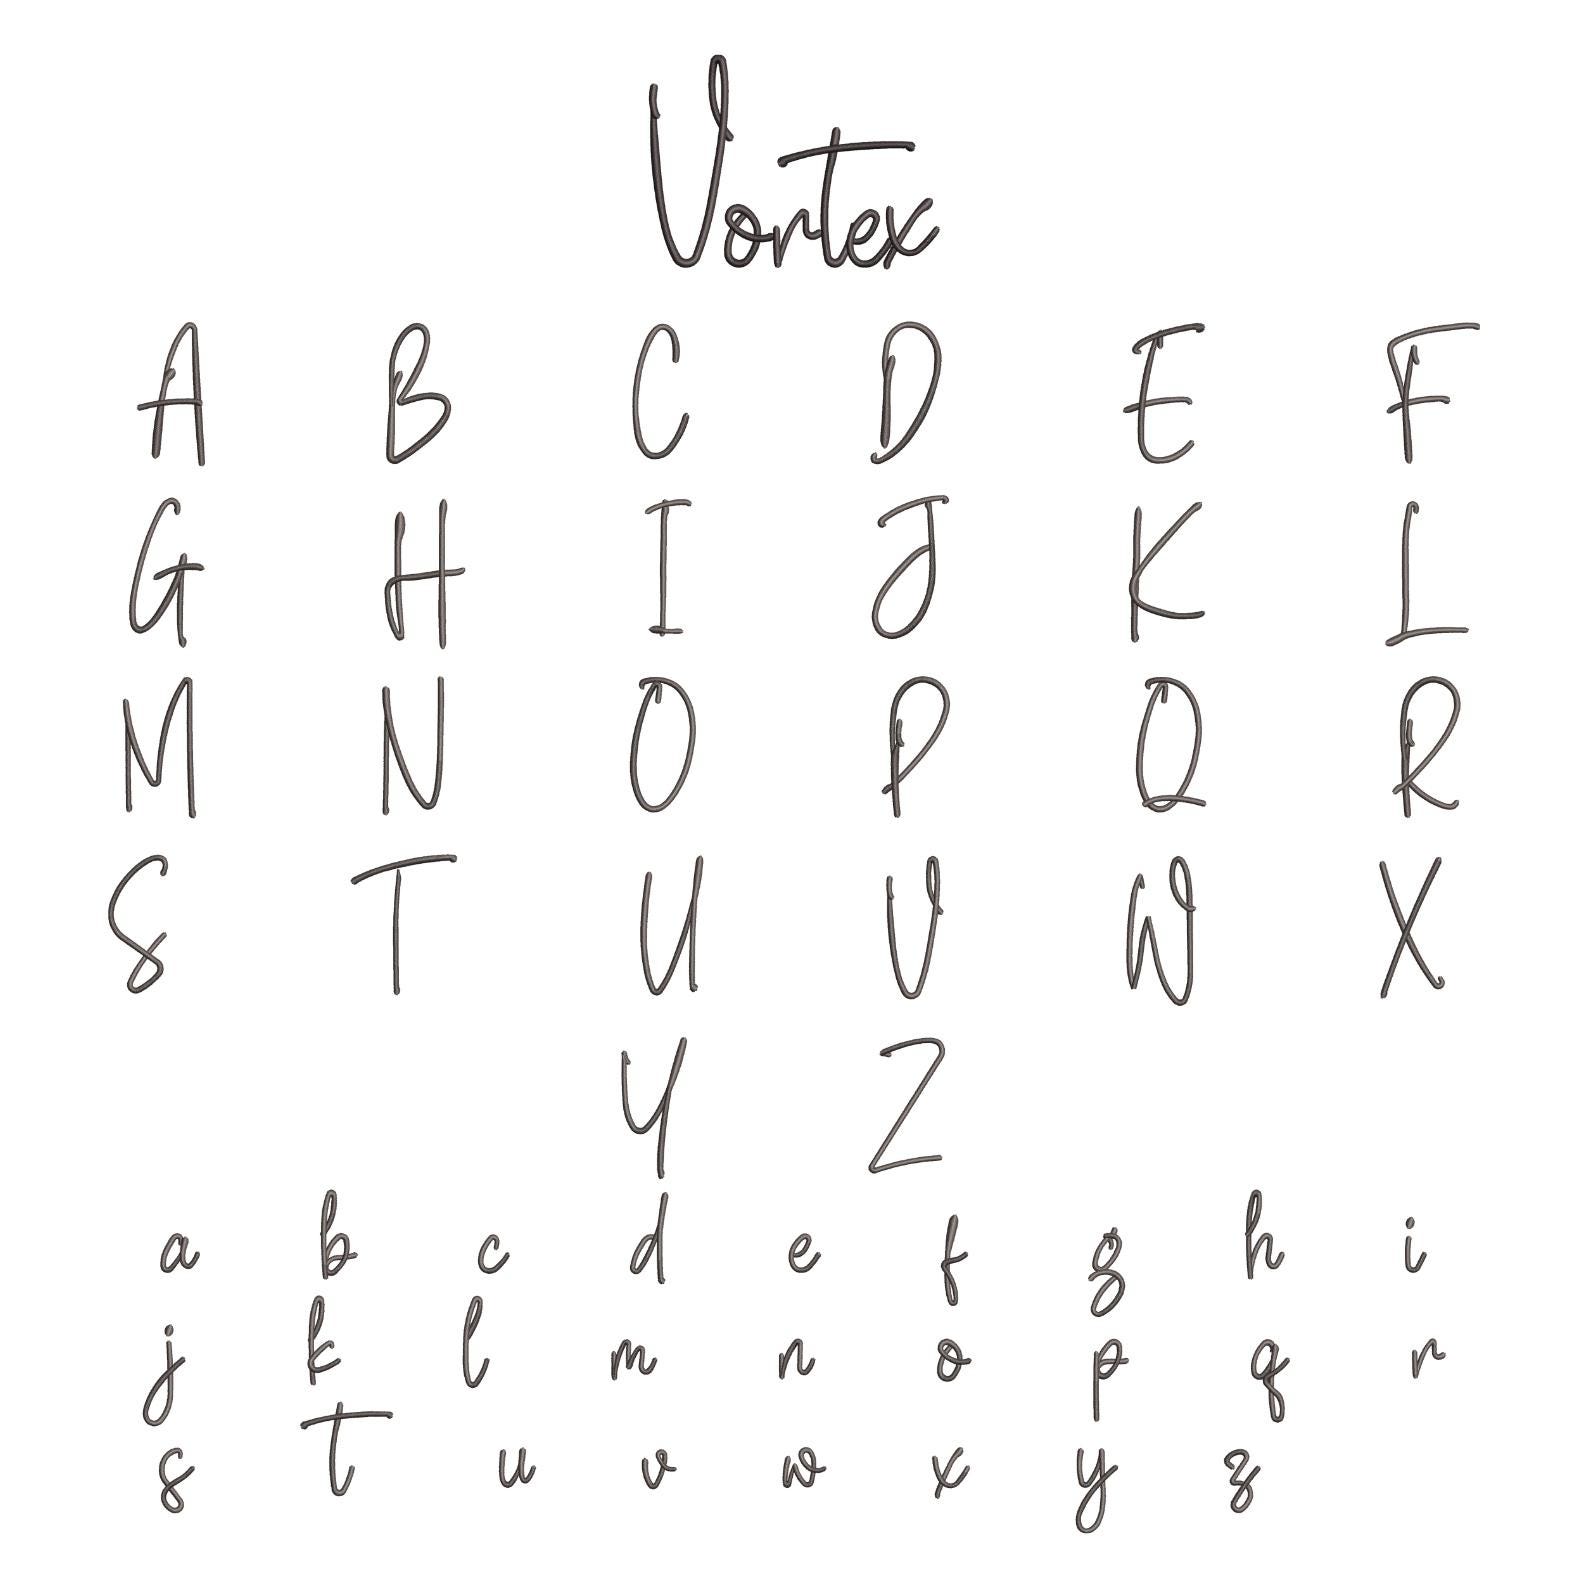 Vortex
A B C D E F
G H I J K L
M N O P Q R
S T U V W X
Y Z
a b c d e f g h i
j k l m n o p q r
s t u v w x y z